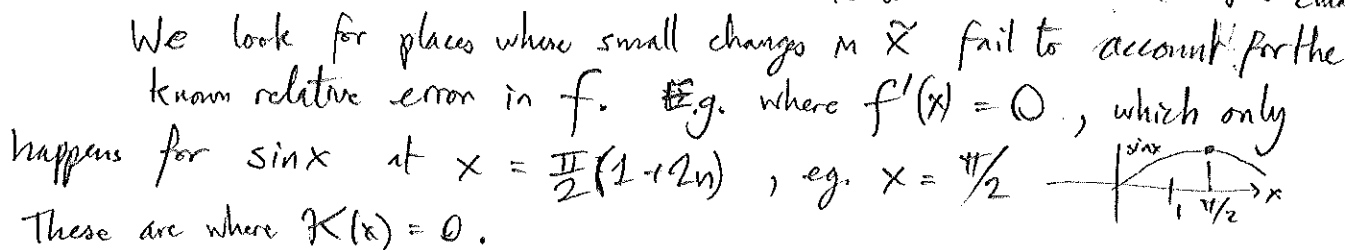 We look for places where small changes in x̃ fail to account for the
known relative error in f. E.g. where f'(x) = 0, which only
happens for sin x at x = π/2 (1+2n), eg. x = π/2
sinx
1 π/2 x
These are where K(x) = 0.